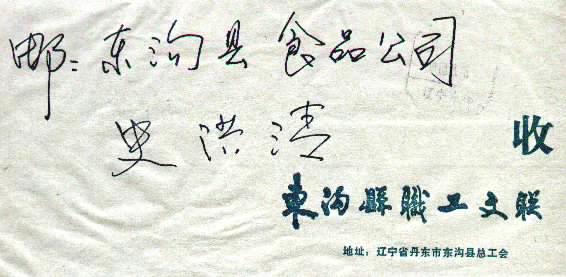 邮：东沟县食品公司
史洪清
收
東沟縣職工文联
地址：辽宁省丹东市东沟县总工会